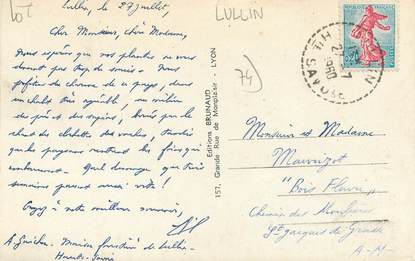 lot
LULLIN
74
Lullin, le 27 juillet,
Cher Monsieur, chère Madame,
Nous espérons que vos plantes ne vous
donnent pas trop de soucis. Nous
profitons du charme de ce pays, dans
un chalet très agréable, au milieu
des prés et des sapins, bercés par le
chant des clochettes des vaches, tandis
que les paysans rentrent les foins
Quel dommage que trois
semaines passent aussi vite !
Croyez à notre meilleur souvenir,
A. Maison de Lullin -
Haute-Savoie
Editions BRUNAUD
157, Grande Rue de Monplaisir - LYON
LULLIN
27 7
1960
HTE SAVOIE
0,20
Monsieur et Madame
"Bois Fleuri"
Chemin des
St Jacques de Grasse
A-M-